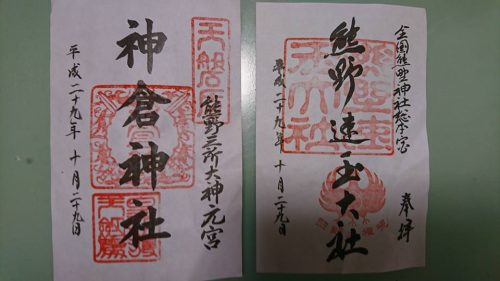 全国熊野神社総本宮 奉拝
熊野速玉大社
平成二十九年 十月二十九日
熊野三所大神元宮
神倉神社
平成二十九年 十月二十九日